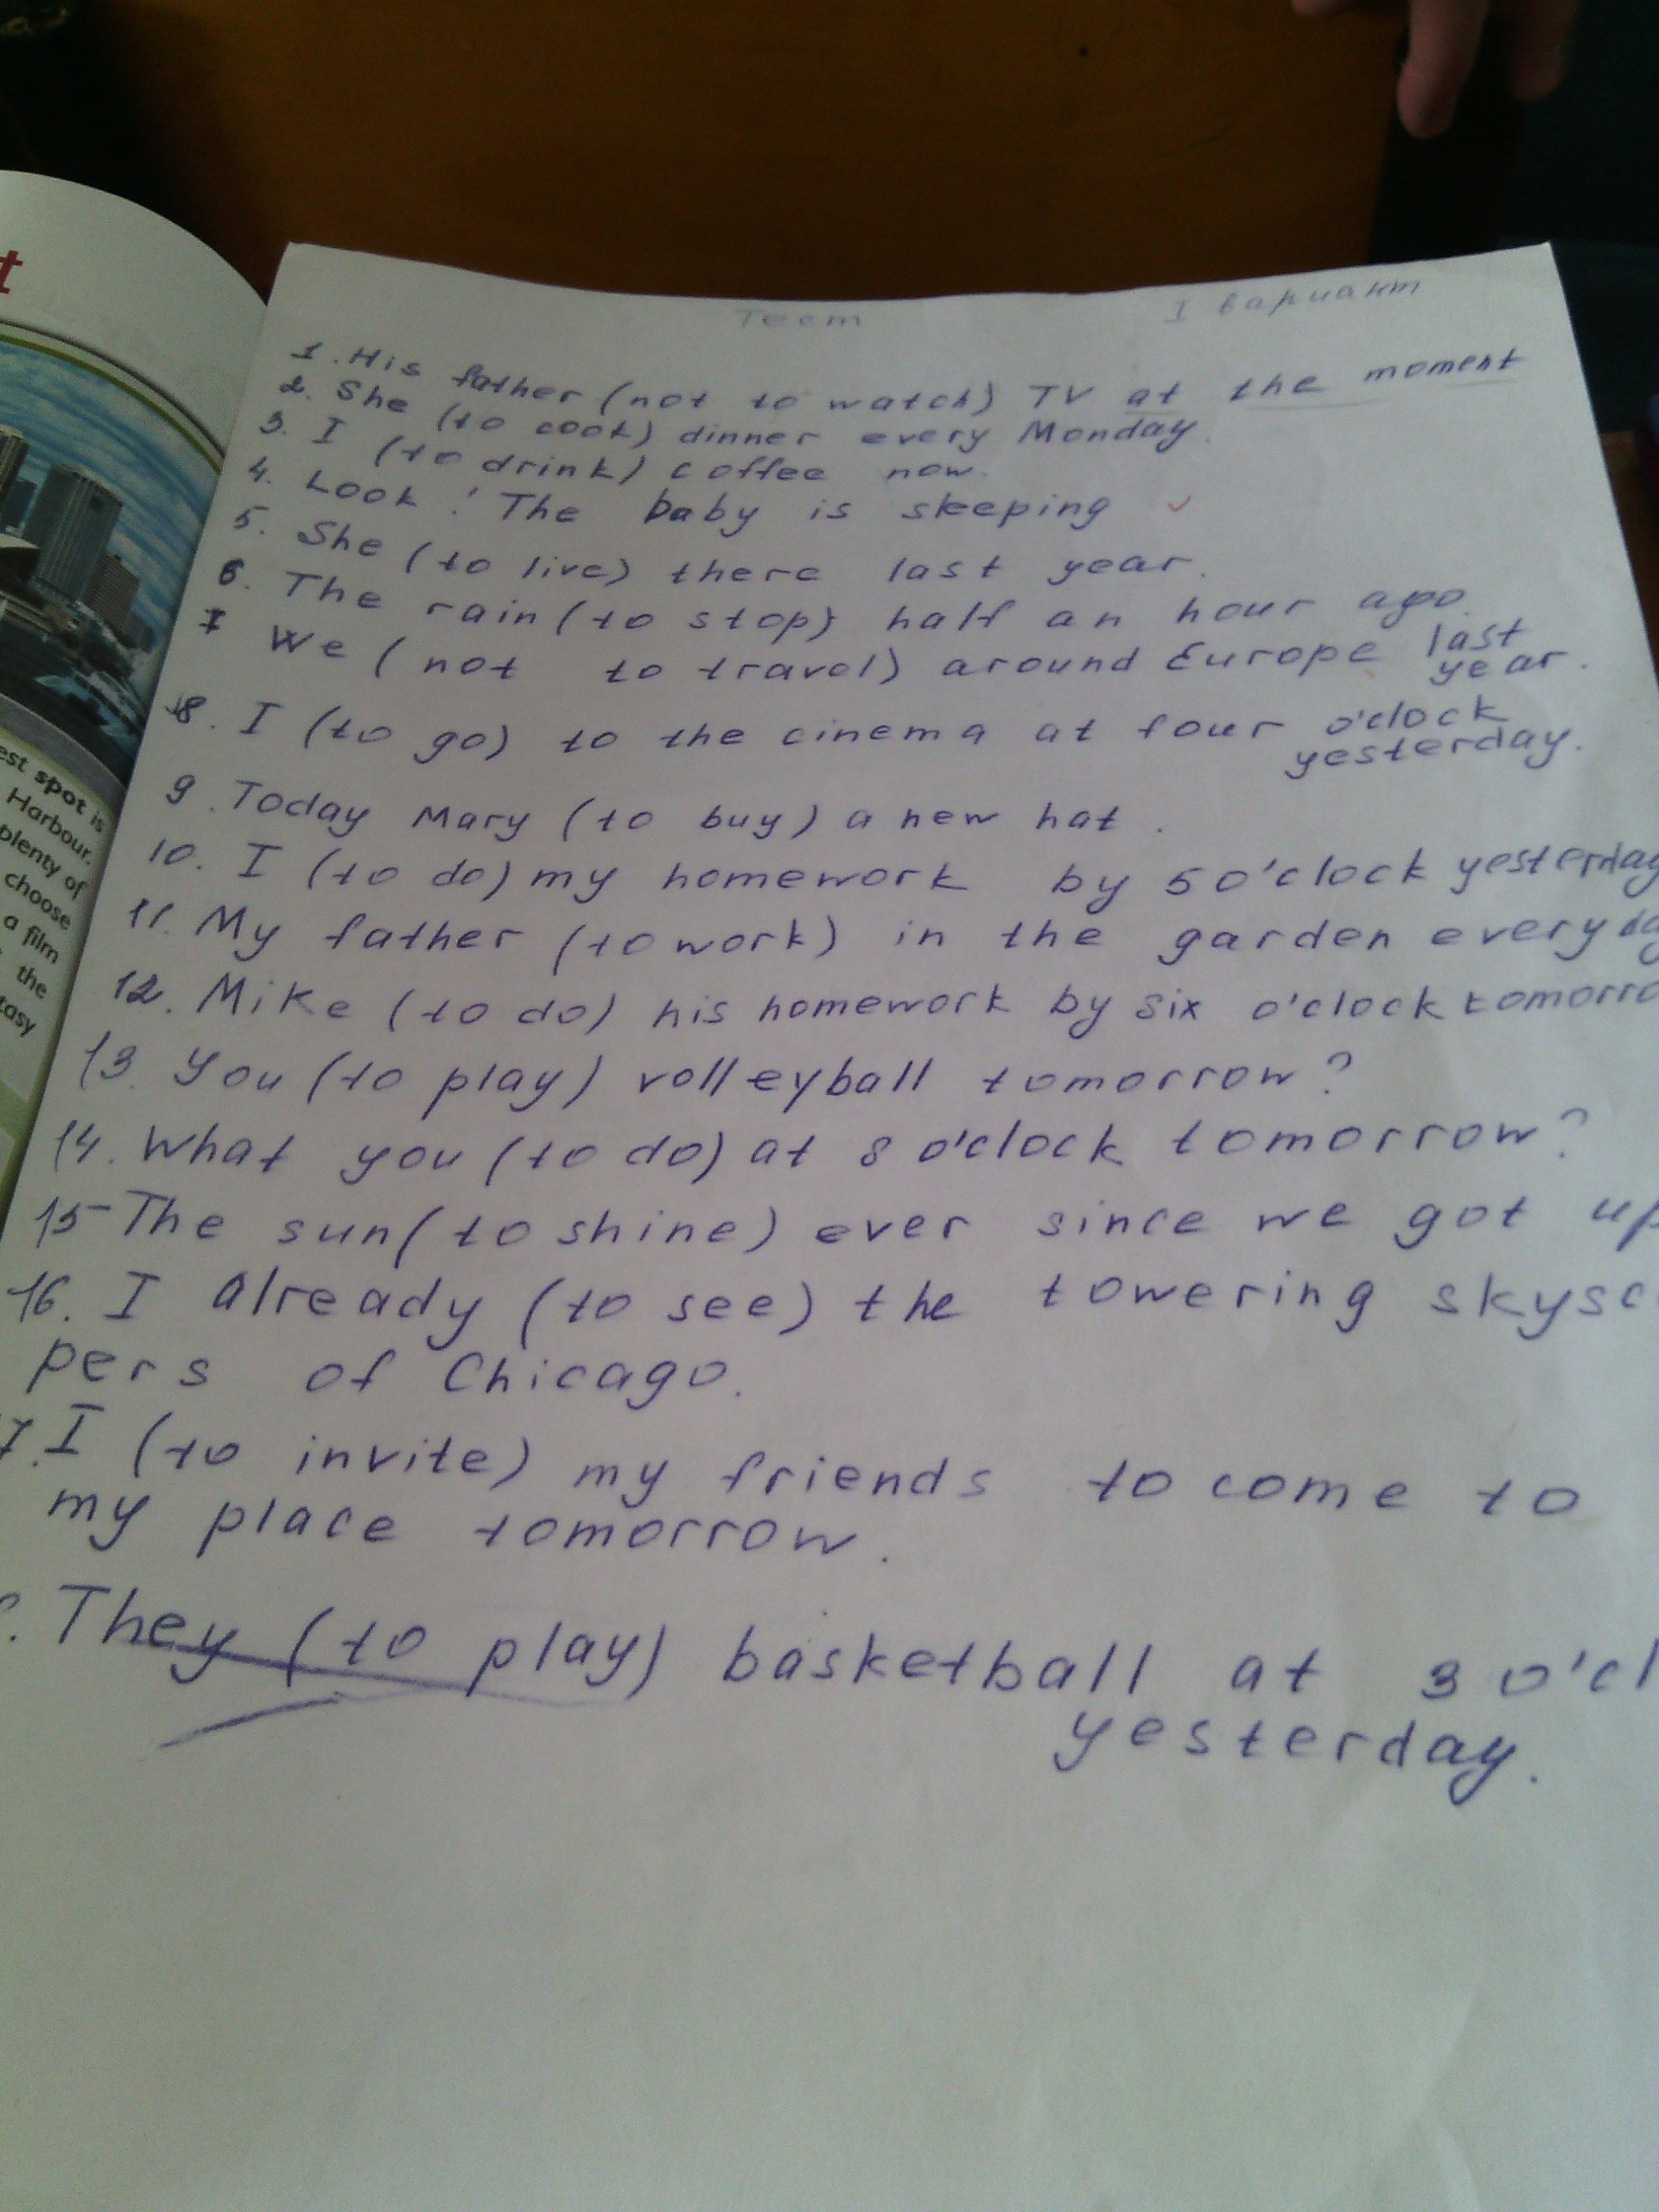 t
est spot is
Harbour.
plenty of
choose
a film
the
tasy
Тест I вариант
1. His father (not to watch) TV at the moment
2. She (to cook) dinner every Monday.
3. I (to drink) coffee now.
4. Look! The baby is sleeping
5. She (to live) there last year.
6. The rain (to stop) half an hour ago.
7 We (not to travel) around Europe last
year.
8. I (to go) to the cinema at four o'clock
yesterday.
9. Today Mary (to buy) a new hat.
10. I (to do) my homework by 5 o'clock yesterday
11. My father (to work) in the garden every da
12. Mike (to do) his homework by six o'clock tomorro
13. You (to play) volleyball tomorrow?
14. What you (to do) at 8 o'clock tomorrow?
15 The sun (to shine) ever since we got up
16. I already (to see) the towering skysc
pers of Chicago.
7. I (to invite) my friends to come to
my place tomorrow.
. They (to play) basketball at 3 o'cl
yesterday.